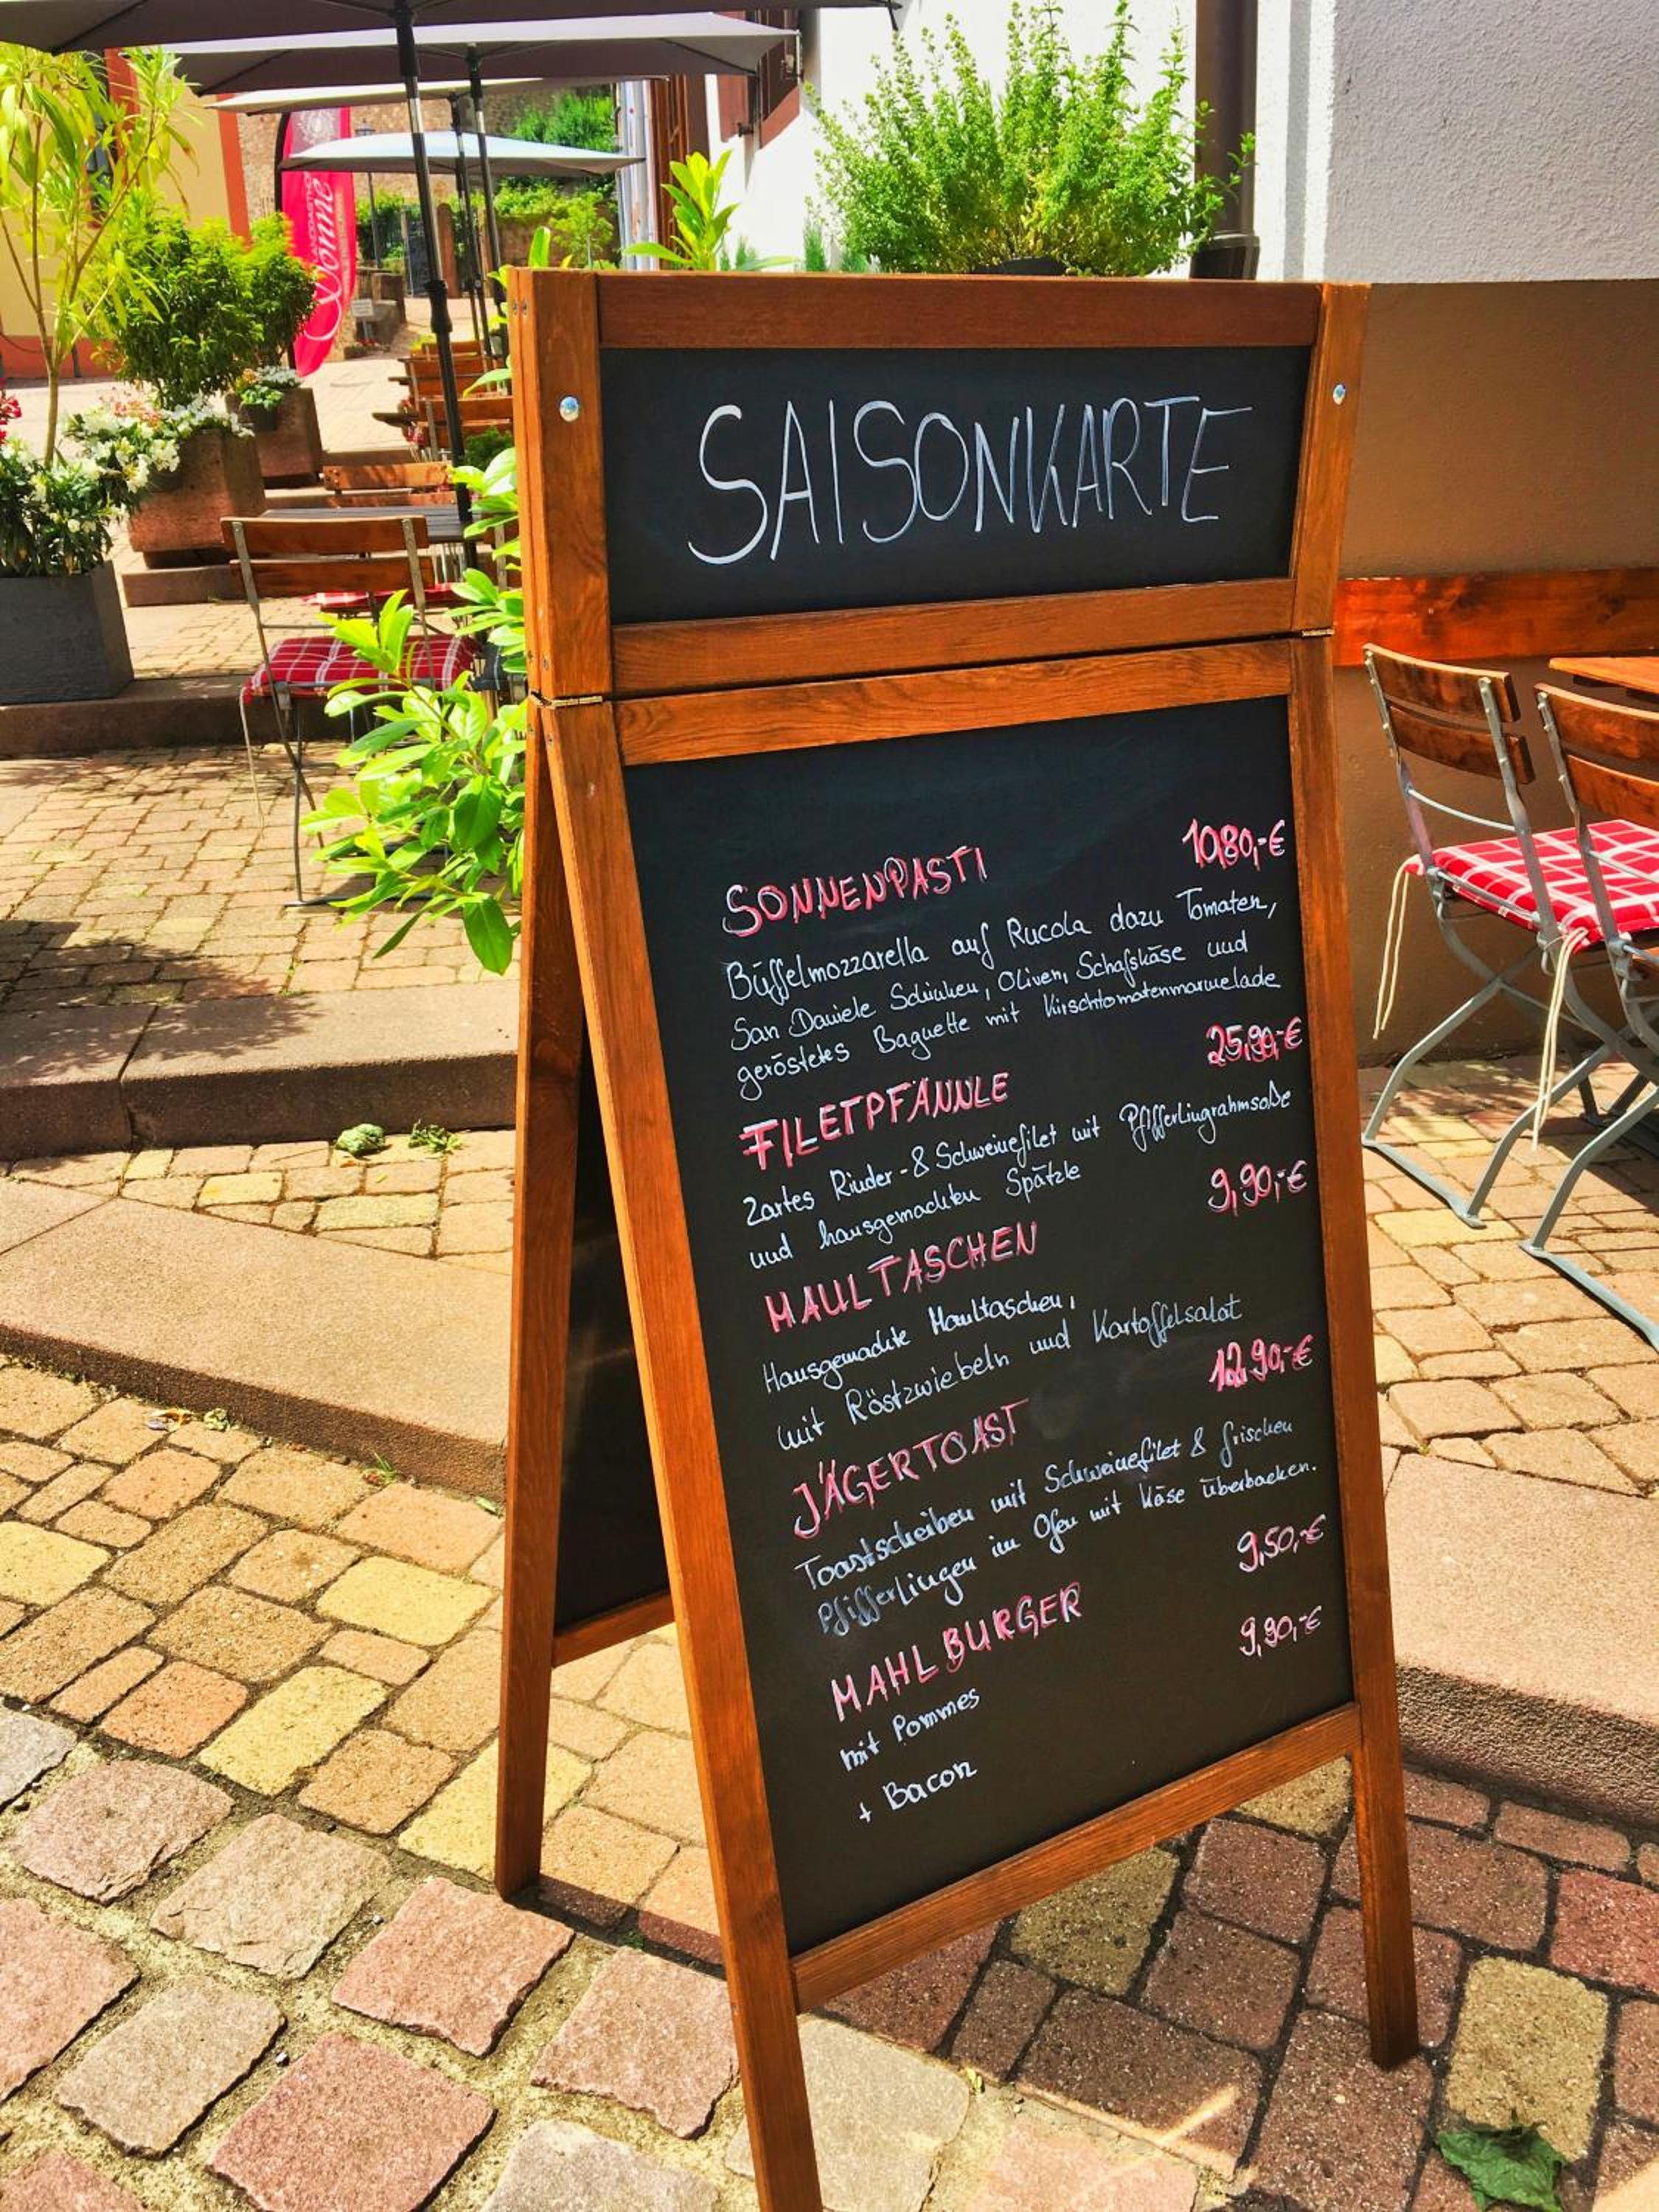 Sonne
SAISONKARTE
SONNENPASTI 10,80,-€
Büffelmozzarella auf Rucola dazu Tomaten,
San Daniele Schinken, Oliven, Schafskäse und
geröstetes Baguette mit Kirschtomatenmarmelade
FILETPFÄNNLE 25,90,-€
Zartes Rinder-& Schweinefilet mit Pfifferlingrahmsoße
und hausgemachten Spätzle
MAULTASCHEN 9,90,-€
Hausgemachte Maultaschen,
mit Röstzwiebeln und Kartoffelsalat
JÄGERTOAST 12,90,-€
Toastscheiben mit Schweinefilet & frischen
Pfifferlingen im Ofen mit Käse überbacken.
MAHLBURGER 9,50,-€
mit Pommes
+ Bacon 9,90,-€